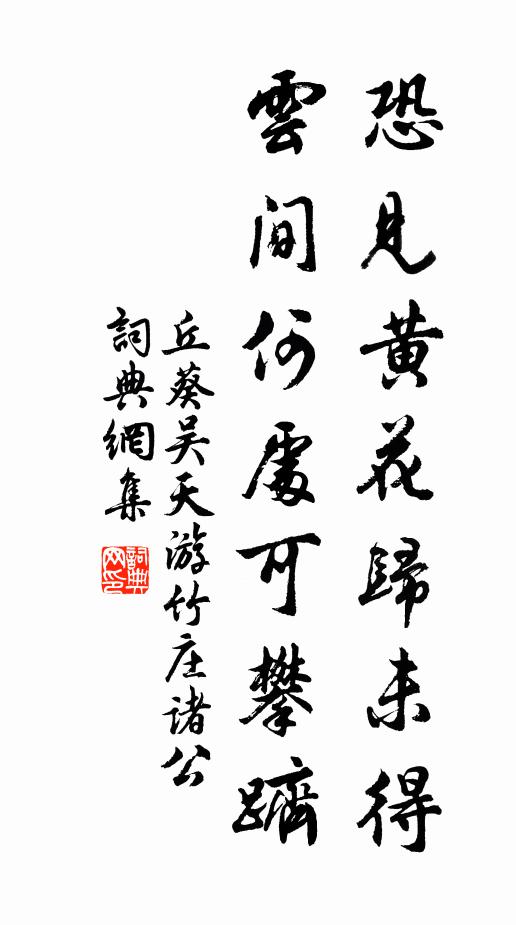 恐見黄花歸未得
雲間何處可攀躋
丘葵吴天游竹庄诸公
詞典網集
詞典网印